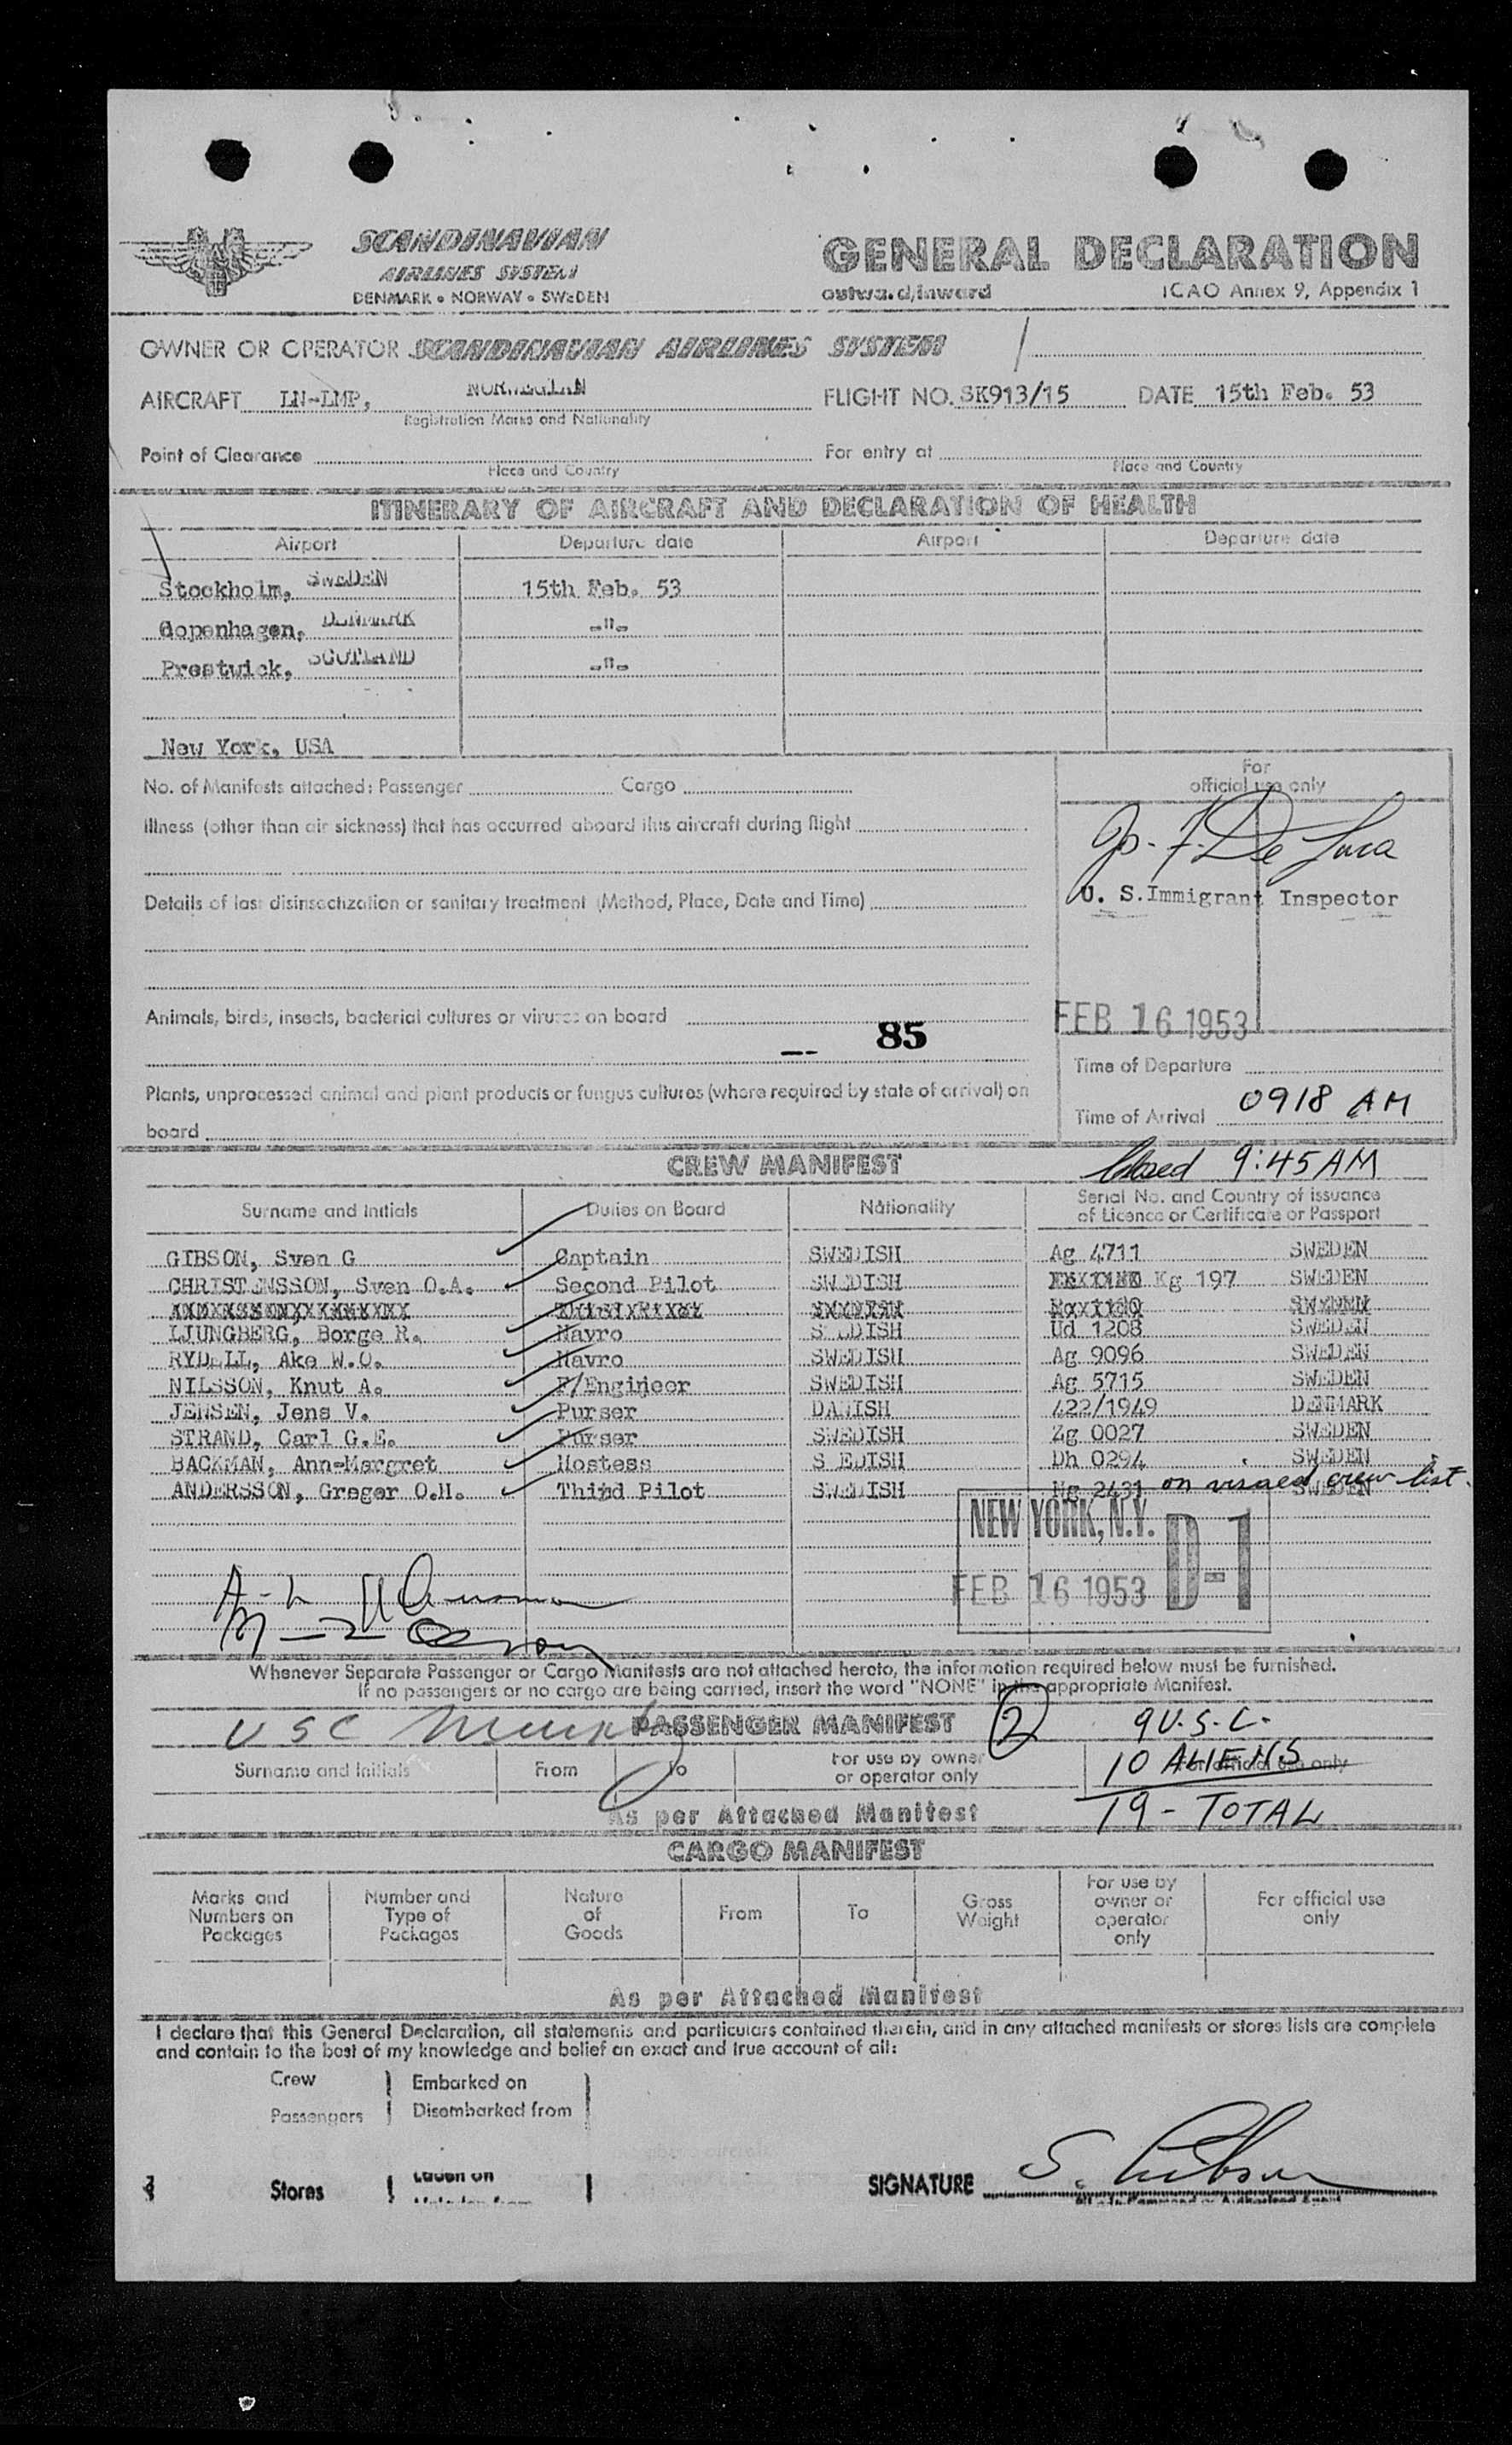 SCANDINAVIAN
AIRLINES SYSTEM
DENMARK • NORWAY • SWEDEN
GENERAL DECLARATION
outward/inward ICAO Annex 9, Appendix 1
OWNER OR OPERATOR SCANDINAVIAN AIRLINES SYSTEM
AIRCRAFT LN-LMP, NORWEGIAN FLIGHT NO. SK913/15 DATE 15th Feb. 53
Registration Marks and Nationality
Point of Clearance For entry at
Place and Country Place and Country
ITINERARY OF AIRCRAFT AND DECLARATION OF HEALTH
Airport Departure date Airport Departure date
Stockholm, SWEDEN 15th Feb. 53
Copenhagen, DENMARK -"-
Prestwick, SCOTLAND -"-
New York, USA
No. of Manifests attached: Passenger Cargo
For
official use only
Illness (other than air sickness) that has occurred aboard this aircraft during flight
Jo. F. De Luca
Details of last disinsectization or sanitary treatment (Method, Place, Date and Time)
U. S. Immigrant Inspector
Animals, birds, insects, bacterial cultures or viruses on board
FEB 16 1953
-- 85
Time of Departure
Plants, unprocessed animal and plant products or fungus cultures (where required by state of arrival) on
board
Time of Arrival 0918 AM
CREW MANIFEST
Closed 9:45 AM
Surname and Initials Duties on Board Nationality Serial No. and Country of issuance
of Licence or Certificate or Passport
GIBSON, Sven G Captain SWEDISH Ag 4711 SWEDEN
CHRISTENSSON, Sven O.A. Second Pilot SWEDISH Kg 197 SWEDEN
LJUNGBERG, Borge R. Navro S EDISH Ud 1208 SWEDEN
RYDELL, Ake W.O. Navro SWEDISH Ag 9096 SWEDEN
NILSSON, Knut A. F/Engineer SWEDISH Ag 5715 SWEDEN
JENSEN, Jens V. Purser DANISH 422/1949 DENMARK
STRAND, Carl G.E. Purser SWEDISH Zg 0027 SWEDEN
BACKMAN, Ann-Margret Hostess S EDISH Dh 0294 SWEDEN
ANDERSSON, Greger O.H. Third Pilot SWEDISH Hg 2431 SWEDEN
on visaed crew list.
NEW YORK, N.Y.
FEB 16 1953 D-1
Whenever Separate Passenger or Cargo Manifests are not attached hereto, the information required below must be furnished.
If no passengers or no cargo are being carried, insert the word "NONE" in the appropriate Manifest.
USC
PASSENGER MANIFEST 2 9 U.S.C.
Surname and Initials From To For use by owner
or operator only For official use only
10 ALIENS
As per Attached Manifest
19 - TOTAL
CARGO MANIFEST
Marks and
Numbers on
Packages
Number and
Type of
Packages
Nature
of
Goods
From
To
Gross
Weight
For use by
owner or
operator
only
For official use
only
As per Attached Manifest
I declare that this General Declaration, all statements and particulars contained therein, and in any attached manifests or stores lists are complete
and contain to the best of my knowledge and belief an exact and true account of all:
Crew Embarked on
Passengers Disembarked from
Stores Laden on
SIGNATURE S. Gibson